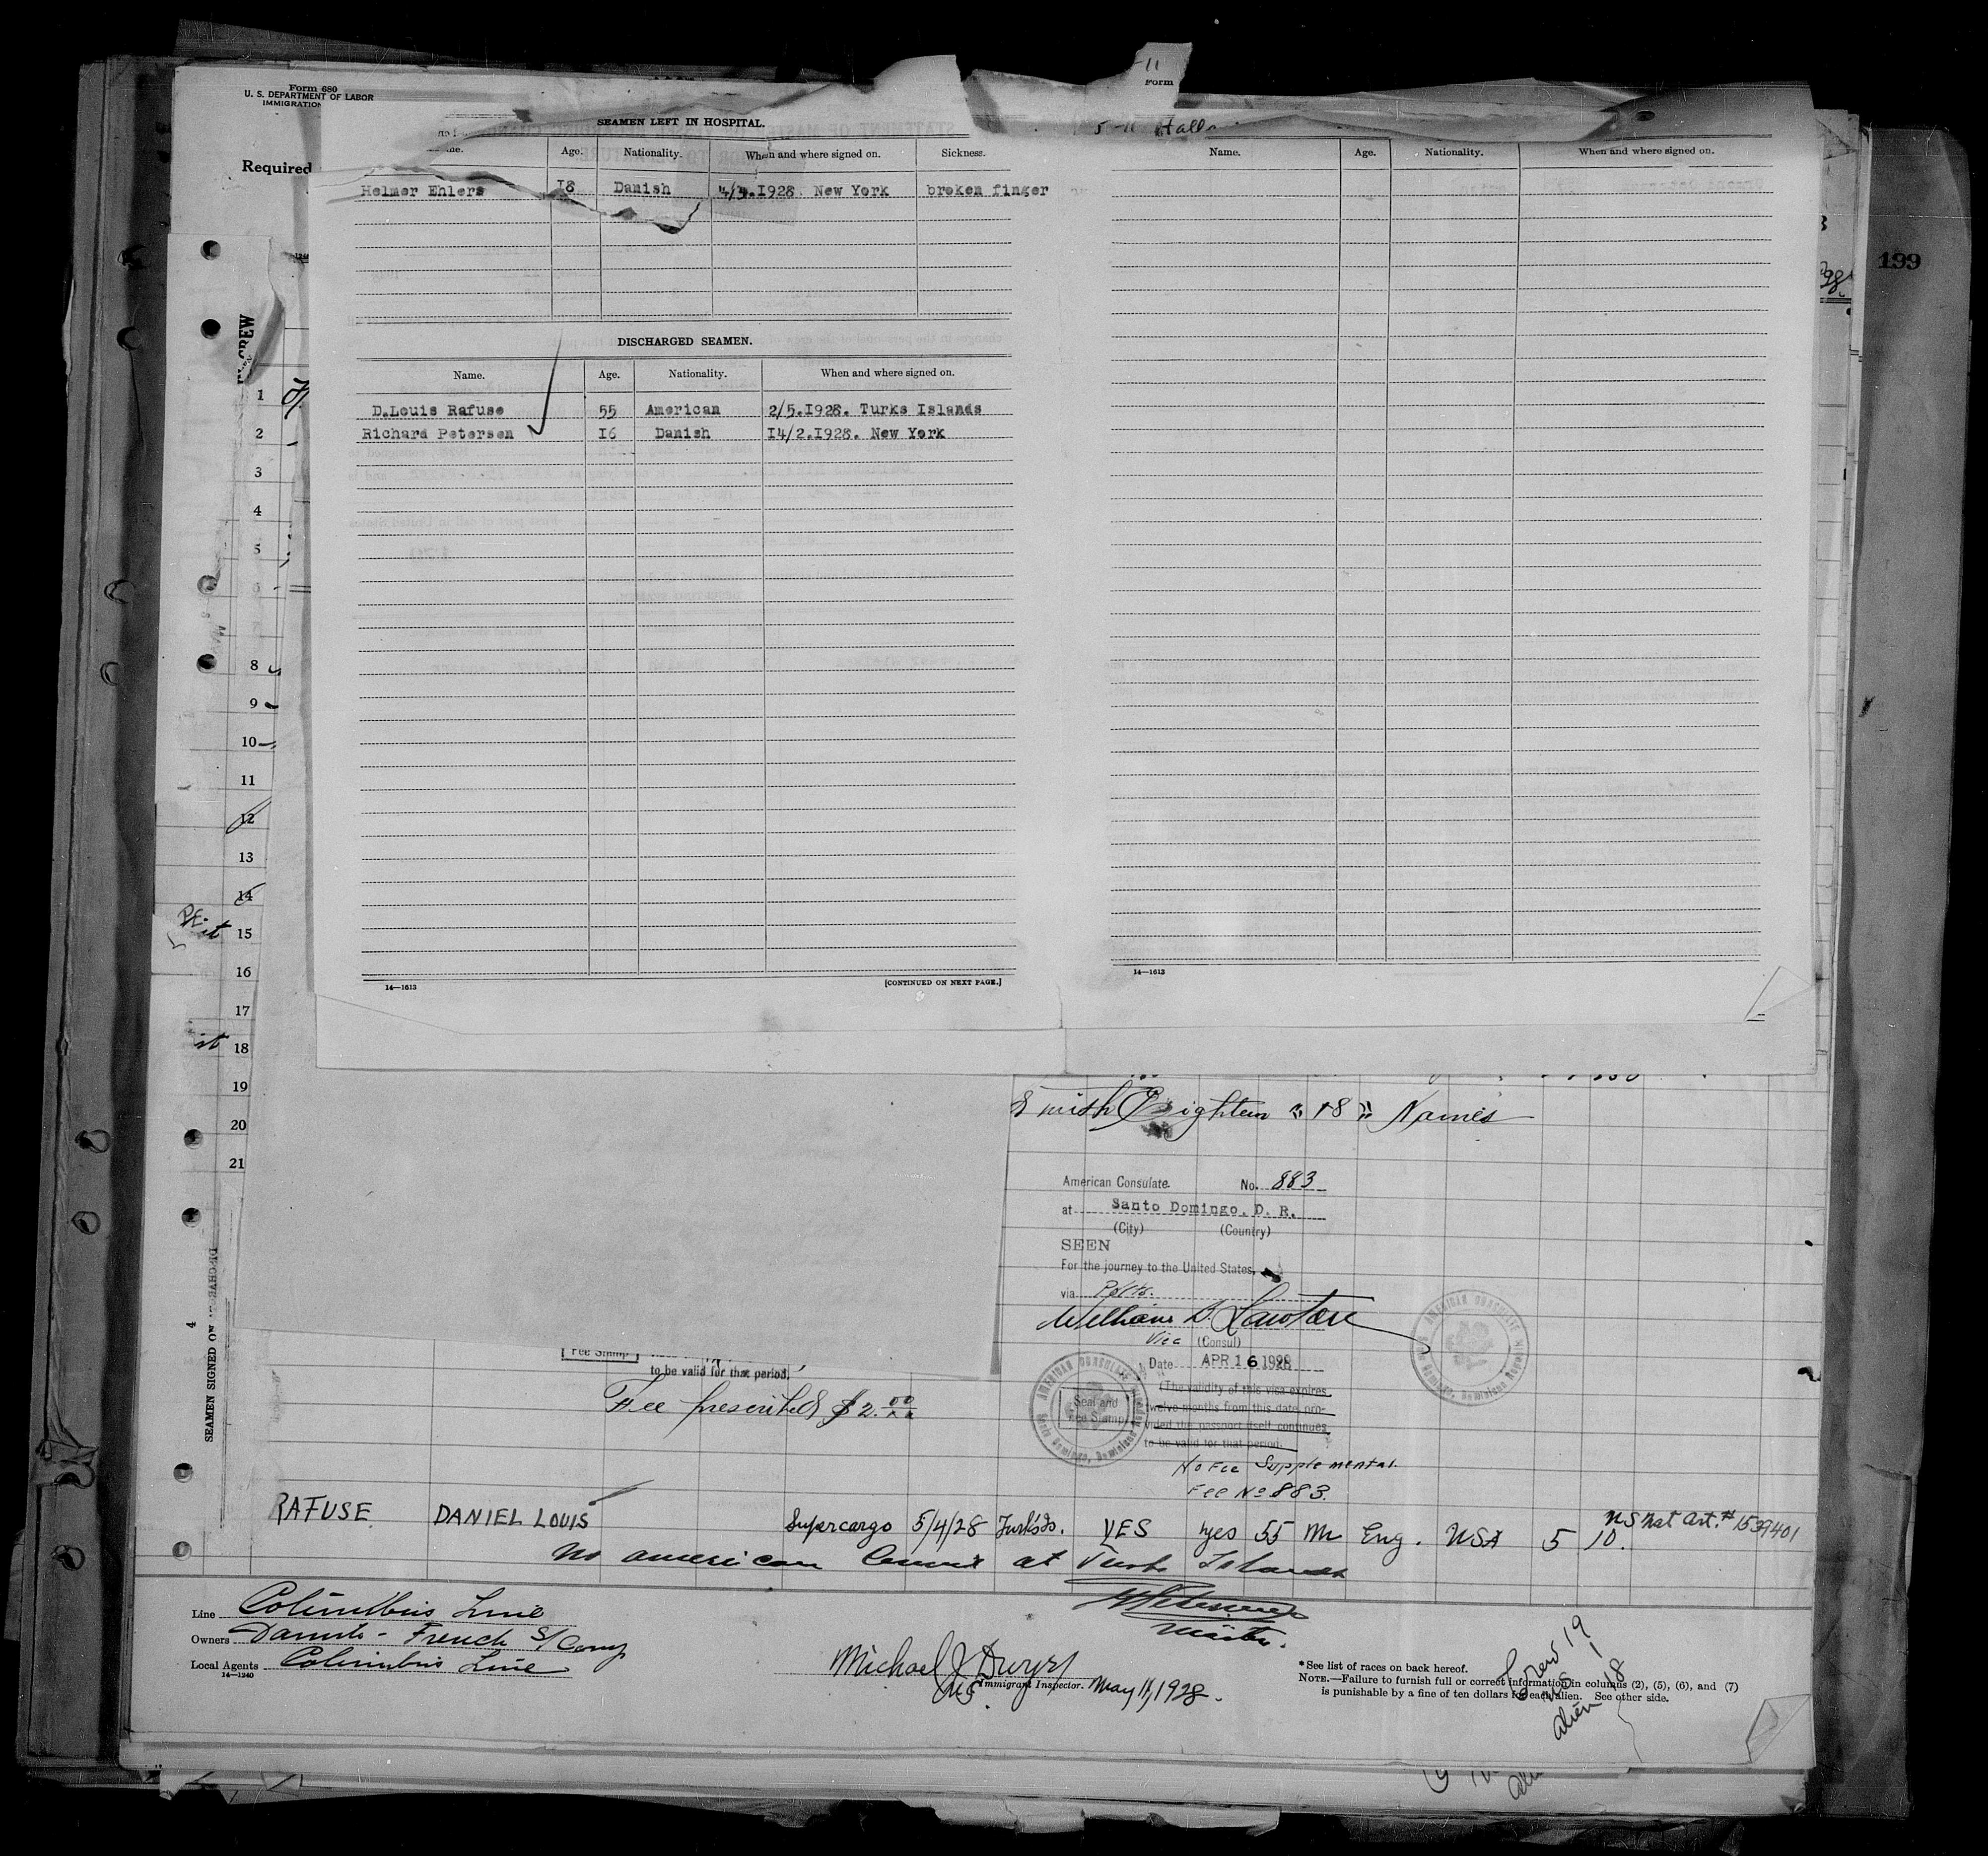 Form 680
U. S. DEPARTMENT OF LABOR
IMMIGRATION
Required
-11
Form
5-11
SEAMEN LEFT IN HOSPITAL.
Age. Nationality. When and where signed on. Sickness.
Helmer Ehlers 18 Danish 4/4.1928 New York broken finger
DISCHARGED SEAMEN.
Name. Age. Nationality. When and where signed on.
D.Louis Rafuse 55 American 2/5.1928. Turks Islands
Richard Petersen 16 Danish 14/2.1928. New York
14—1613 [CONTINUED ON NEXT PAGE.]
Name. Age. Nationality. When and where signed on.
14—1613
199
1
2
3
4
5
6
7
8
9
10
11
12
13
14
15
16
17
18
19
20
21
4
SEAMEN SIGNED ON
Eighteen "18" Names
American Consulate. No. 883
at Santo Domingo, D. R.
(City) (Country)
SEEN
For the journey to the United States,
via
William B. Lawton
Vice (Consul)
Date APR 16 1928
(The validity of this visa expires
twelve months from this date, pro-
vided the passport itself continues
to be valid for that period.
Seal and
Fee Stamp
No Fee Supplemental
Fee No 883.
Fee Stamp
to be valid for that period.
Fee prescribed $2.00
RAFUSE DANIEL LOUIS Supercargo 5/4/28 Turks Is. YES yes 55 M Eng. USA 5 10. US Nat Art. # 1539401
No american Consul at Turks Islands
Master.
Line Columbus Line
Owners Danish - French S/ Comp
Local Agents Columbus Line
14—1240
Michael J Dwyer
Immigrant Inspector. May 11, 1928.
* See list of races on back hereof.
NOTE.—Failure to furnish full or correct information in columns (2), (5), (6), and (7)
is punishable by a fine of ten dollars for each alien. See other side.
Crew 19
US 1
Alien 18